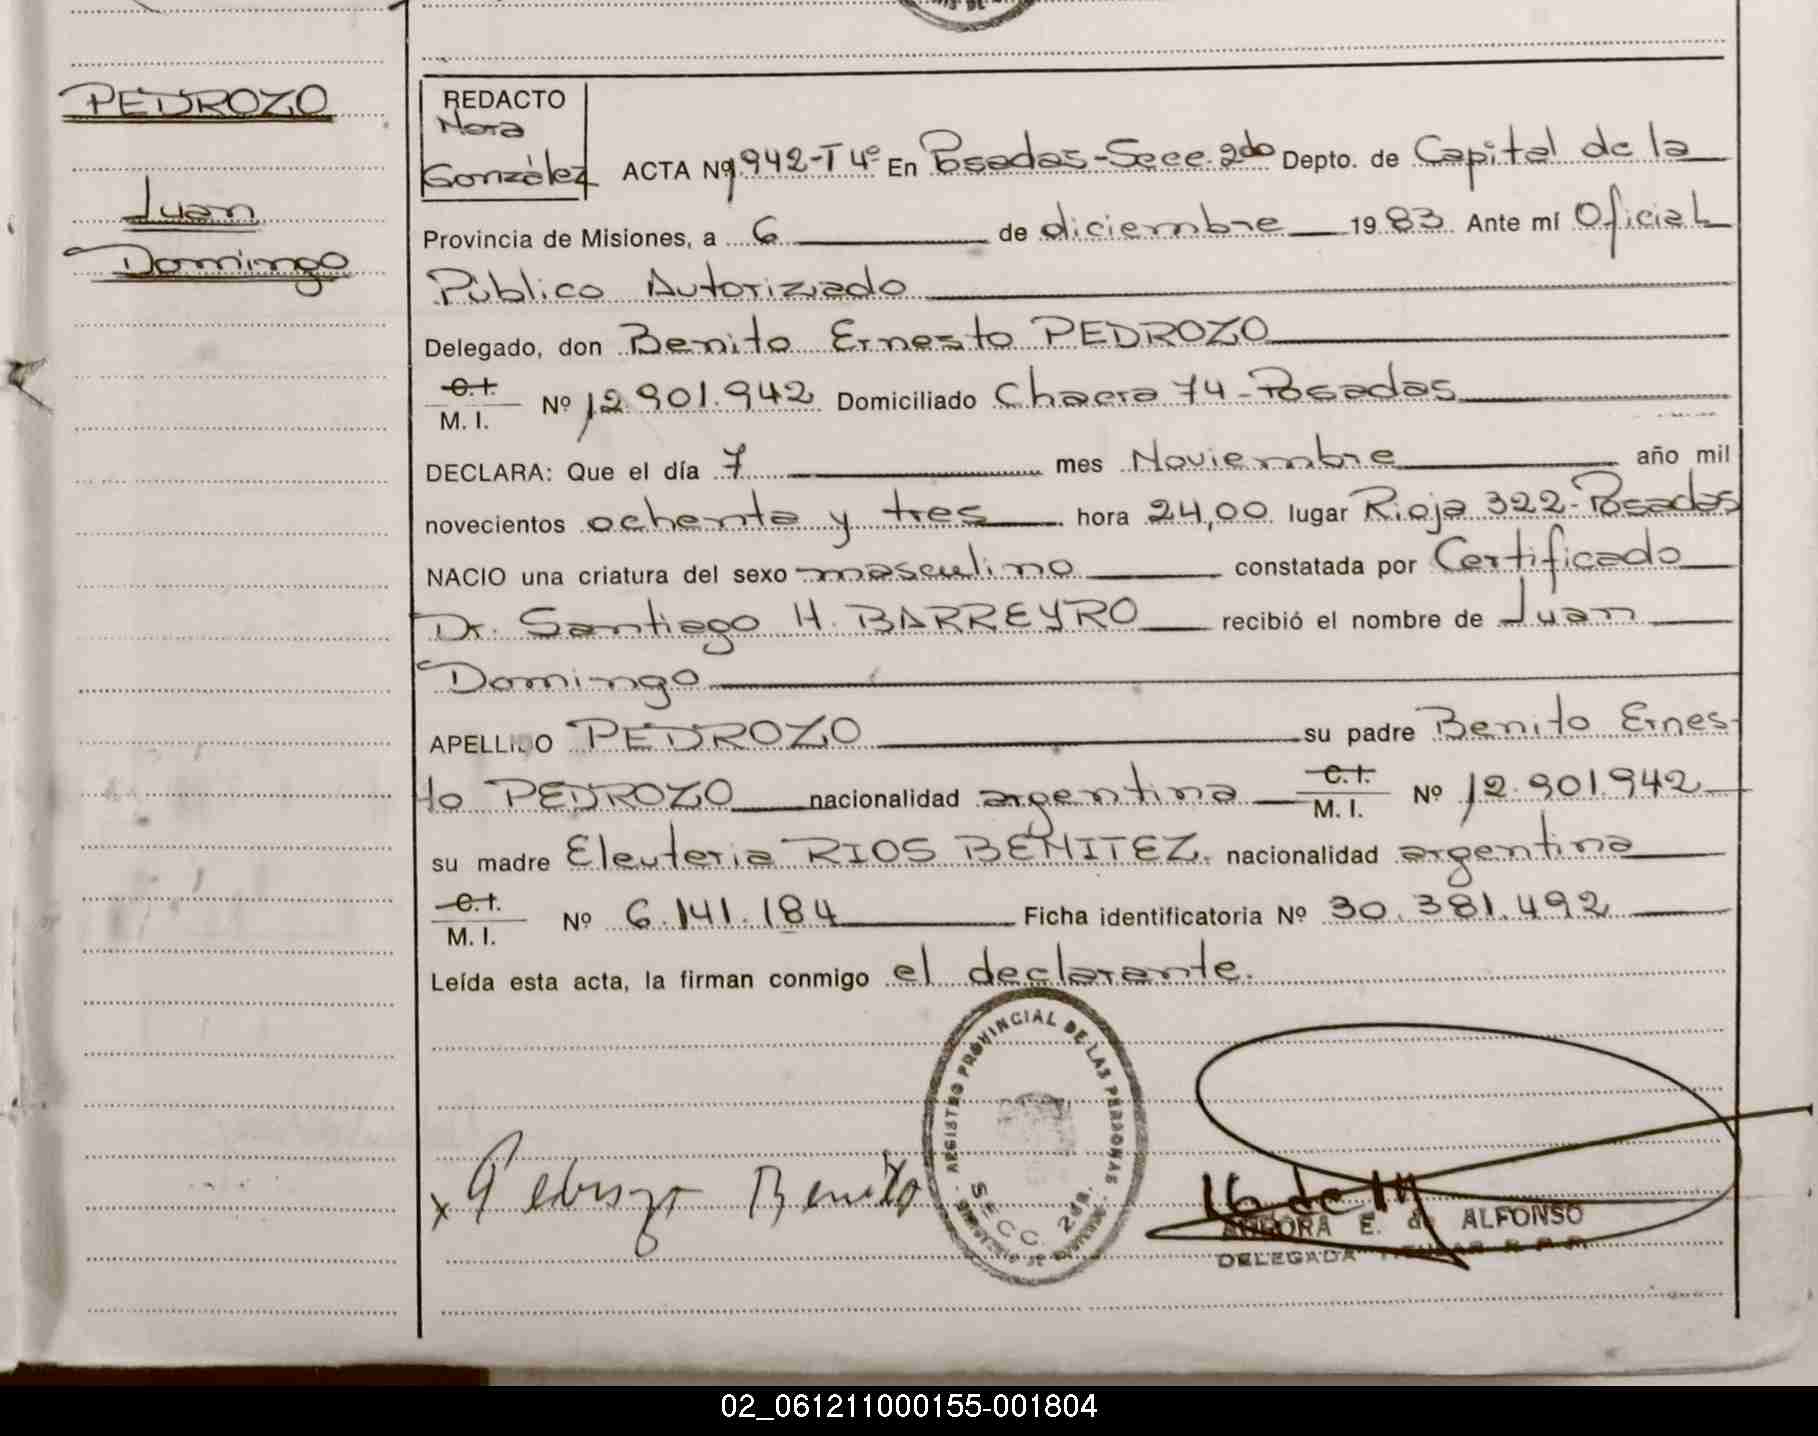 PEDROZO
Juan
Domingo
REDACTO
Nora
González
ACTA Nº 942-T4º En Posadas-Secc. 2do Depto. de Capital de la
Provincia de Misiones, a 6 de diciembre 1983. Ante mí Oficial
Público Autorizado
Delegado, don Benito Ernesto PEDROZO
C.I.
M. I. Nº 12.901.942 Domiciliado Chacra 74-Posadas
DECLARA: Que el día 7 mes Noviembre año mil
novecientos ochenta y tres hora 24,00 lugar Rioja 322-Posadas
NACIO una criatura del sexo masculino constatada por Certificado
Dr. Santiago H. BARREYRO recibió el nombre de Juan
Domingo
APELLIDO PEDROZO su padre Benito Ernes-
to PEDROZO nacionalidad argentina C.I. M. I. Nº 12.901.942
su madre Eleuteria RIOS BENITEZ. nacionalidad argentina
C.I.
M. I. Nº 6.141.184 Ficha identificatoria Nº 30.381.492
Leída esta acta, la firman conmigo el declarante.
REGISTRO PROVINCIAL DE LAS PERSONAS
SECC. 2da.
x Pedrozo Benito
AURORA E. de ALFONSO
DELEGADA TITULAR R.P.P.
02_061211000155-001804